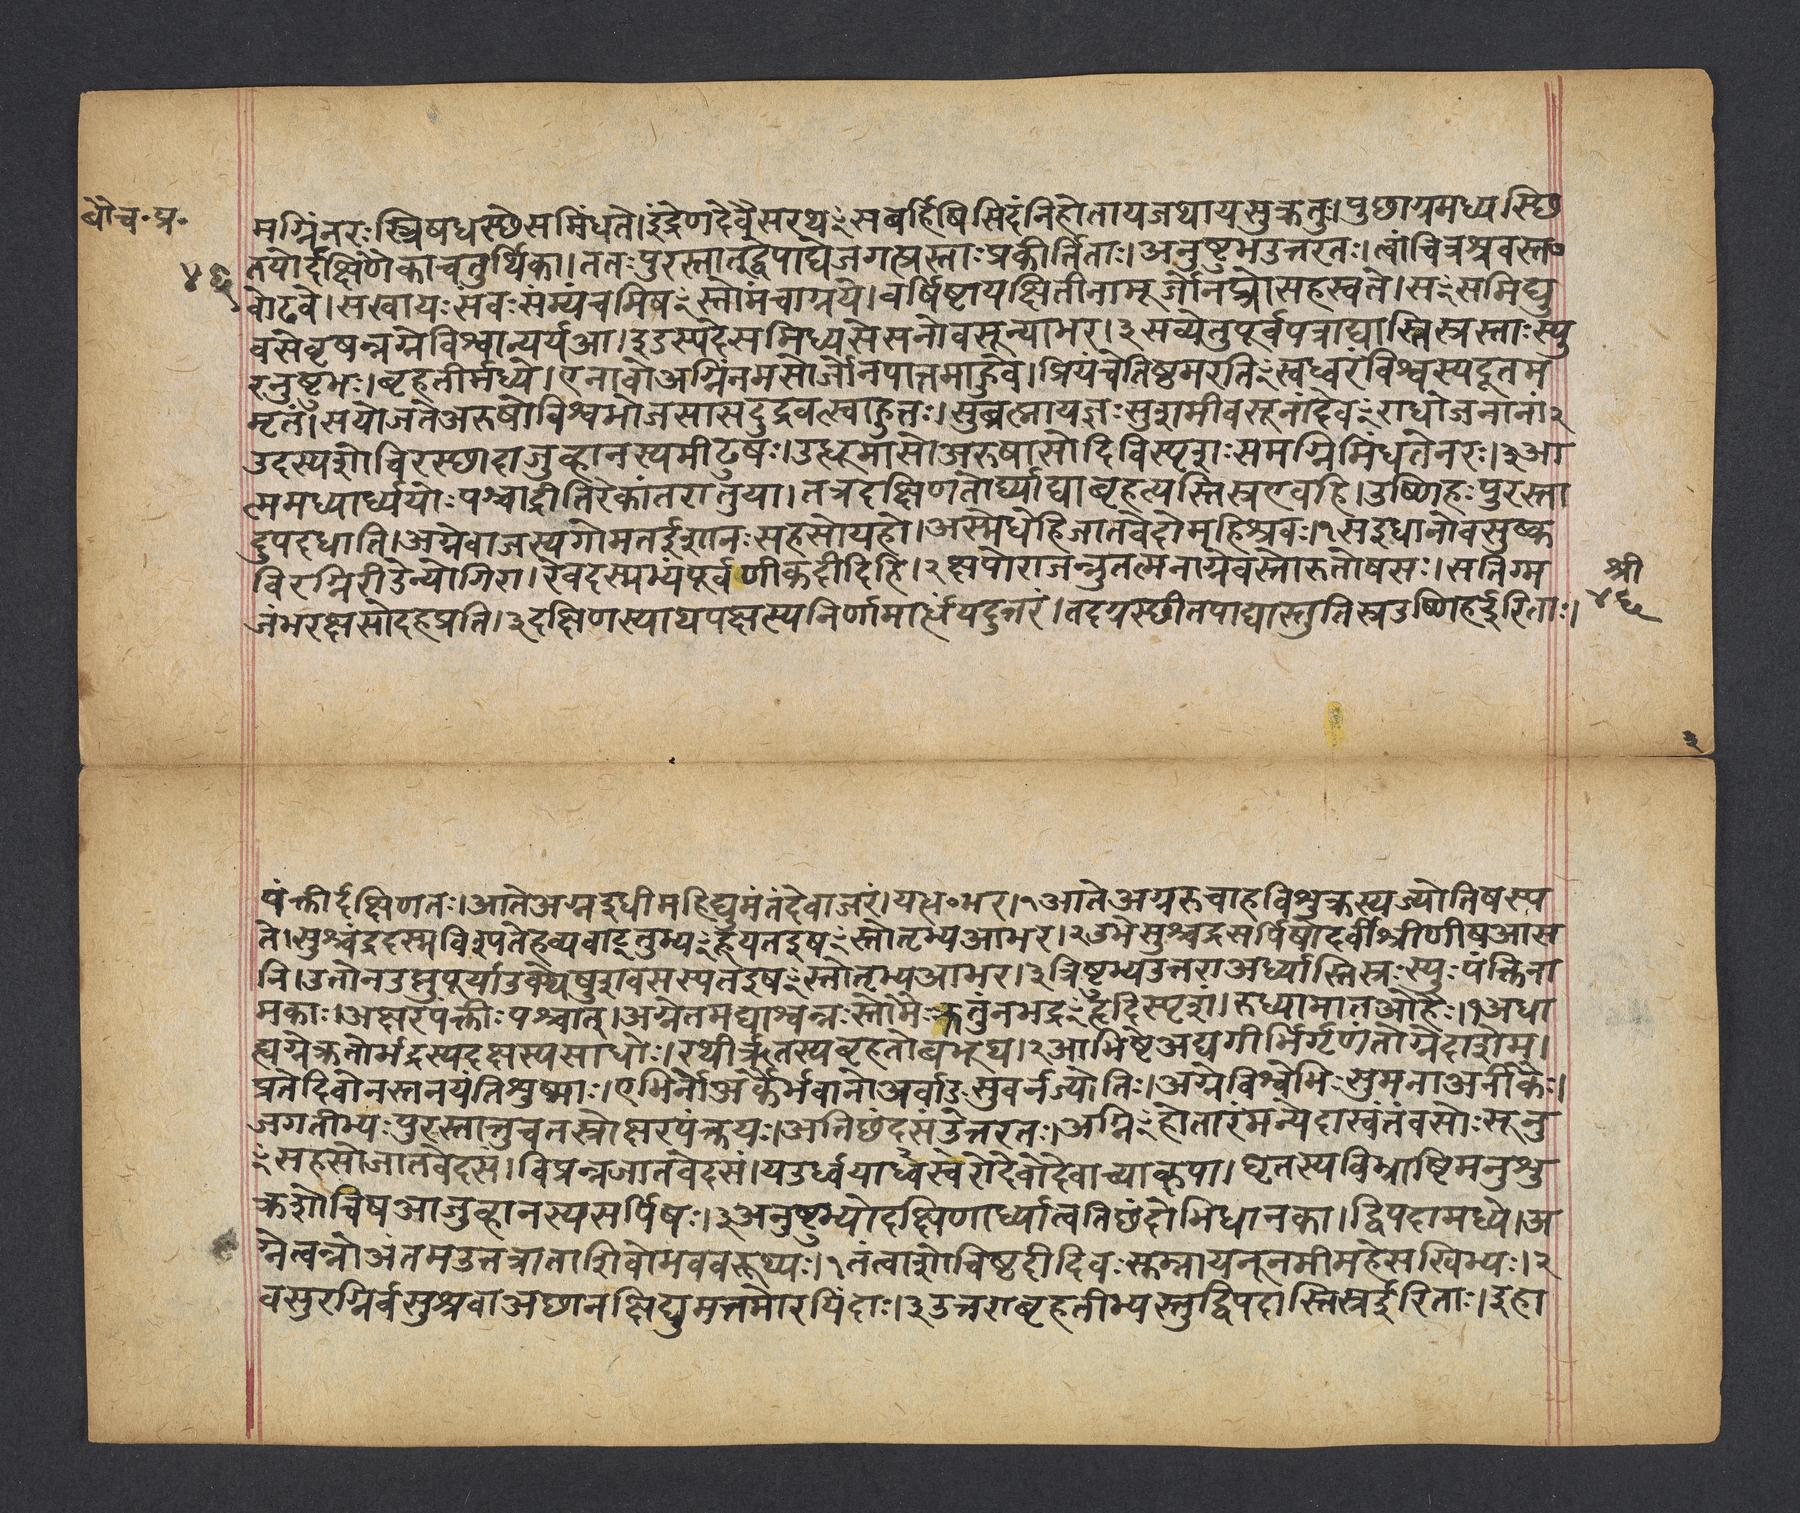 बौ॰च॰प्र॰
४६
मग्निंनरःस्त्रिषधस्छेसमिंधते।इंद्रेणदेवैसरथꣳसबर्हिषिसिदंनिहोतायजथायसुक्रतुः।पुछाग्रमध्यस्छि
तयोर्दक्षिणैकाचतुर्थिका।ततःपुरस्तातद्वेपाद्येजगत्यस्ताःप्रकीर्तिताः।अनुष्टुभउत्तरतः।त्वांचित्रश्रवस्त॰
वोढवे।सखायःसवःसंम्यंचमिषꣳस्तोमंचाग्नये।वर्षिष्टायक्षितीनामूर्जोनप्त्रेसहस्वते।सꣳसमिद्यु
वसेवृषन्नग्नेविश्वान्यर्यआ।इडस्पदेसमिध्यसेसनोवसून्याभर।३सव्येतुपूर्वपत्राद्यास्तिस्रस्ताःस्यु
रनुष्टुभः।बृहतीर्मध्ये।एनावोअग्निंनमसोर्जोनपातमाहुवे।प्रियंचेतिष्ठमरतिꣳस्वध्वरंविश्वस्यदूतम
मृतं।सयोजतेअरुषोविश्वभोजसासदुद्रवत्स्वाहुतः।सुब्रत्मायज्ञःसुशमीवसूनांदेवꣳराधोजनानां२
उदस्यशोचिरस्छादाजुव्हानस्यमीढुषः।उत्धूमासोअरुषासोदिविस्पृशःसमग्निमिंधतेनरः।३आ
त्ममध्यार्ध्ययोःपश्चाद्रीतिरेकांतरातुया।तत्रदक्षिणतोर्घ्याद्याबृहत्यस्तिस्रएवहि।उष्णिहःपुरस्ता
दुपदधाति।अग्नेवाजस्यगोमतईशानःसहसोयहो।अस्मेधेहिजातवेदोमहिश्रवः।१सइधानोवसुष्क
विरग्निरीडेन्योगिरा।रेवदस्मभ्यंपूर्वणीकदीदिहि।२क्षपोराजन्नुतत्मनाग्नेवस्तोरुतोषसः।सतिग्म
जंभरक्षसोदहप्रति।३दक्षिणस्याथपक्षस्यनिर्णामार्त्धंयदुत्तरं।तदग्रस्छीतपाद्यास्तुतिस्रउष्णिहईरिताः।
श्री
४६
३
पंक्तीर्दक्षिणतः।आतेअग्नइधीमहिद्युमंतंदेवाजरं।यध॰भर।१आतेअग्नरुचाहविश्रुक्रस्यज्योतिषस्प
ते।सुश्चंद्रदस्मविश्पतेहव्यवाट्तुभ्यꣳहूयतइषꣳस्तोतृभ्यआभर।२उभेसुश्चंद्रसर्पिषोदर्वीश्रीणीषआस
नि।उतोनउत्पुपूर्याउक्थेषुशवसस्पतइषꣳस्तोतृभ्यआभर।३त्रिष्टुभ्यउत्तराअर्ध्यास्तिस्रःस्युःपंक्तिना
मकाः।अक्षरपंक्तीःपश्चात्।अग्नेतमद्याश्वन्नःस्तोमैःक्रतुंनभद्रꣳहृदिस्पृशं।रुध्यामातओहैः।१अधा
ह्यग्नेक्रतोर्भद्रस्यदक्षस्यसाधोः।रथीर्ऋतस्यबृहतोबभूथ।२आभिष्टेअद्यगीर्भिर्गृणंतोग्नेदाशेम्।
प्रतेदिवोनस्तनयंतिशुष्माः।एभिर्नोअर्कैर्भवानोअर्वाङसुवर्नज्योतिः।अग्नेविश्वेभिःसुमनाअनीकैः।
जगतीभ्यःपुरस्तात्तुचतस्रोक्षरपंक्तयः।अतिछंदसंउत्तरतः।अग्निꣳहोतारंमन्येदास्वंतंवसोःसूनु
ꣳसहसोजातवेदसं।विप्रन्नजातवेदसं।यउर्ध्वयाध्वस्वरोदेवोदेवाच्याकृपा।घृतस्यविभ्राष्टिमनुशु
क्रशोचिषआजुव्हानस्यसर्पिषः।३अनुष्टुभ्योदक्षिणार्ध्यात्वतिछंदोभिधानका।द्विपदामध्ये।अ
ग्नेत्वन्नोअंतमउतत्राताशिवोभववरूथ्यः।१तंत्वाशोचिष्ठदीदिवःसुम्नायनूनमीमहेसखिभ्यः।२
वसुरग्निर्वसुश्रवाअछानक्षिद्युमत्तमोरयिंदाः।३उत्तराबृहतीभ्यस्तुद्विपदास्तिस्रईरिताः।इहा